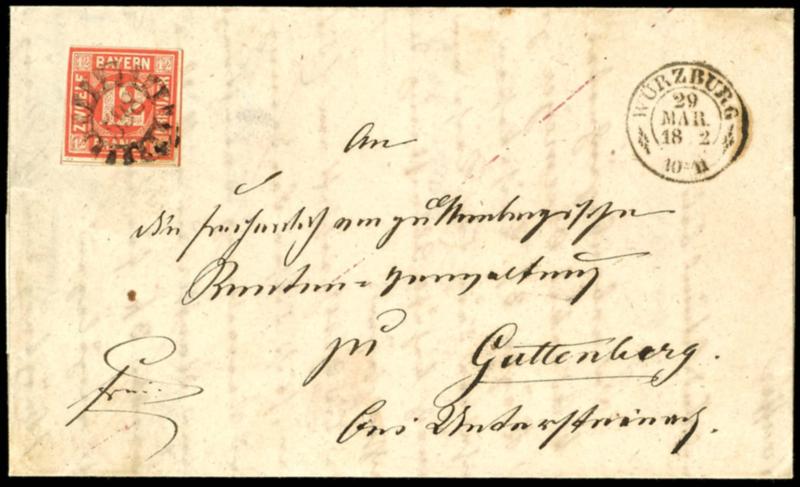 BAYERN
12 12
ZWÖLF
12
WÜRZBURG
29
MAR.
18 2
10-11
An
die freiherrlich von Guttenbergische
Renten=Verwaltung
zu Guttenberg.
frei
bei Untersteinach.